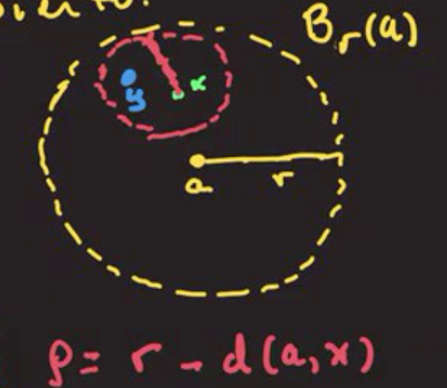 B_r(a)
y x
a r
ρ = r - d(a,x)